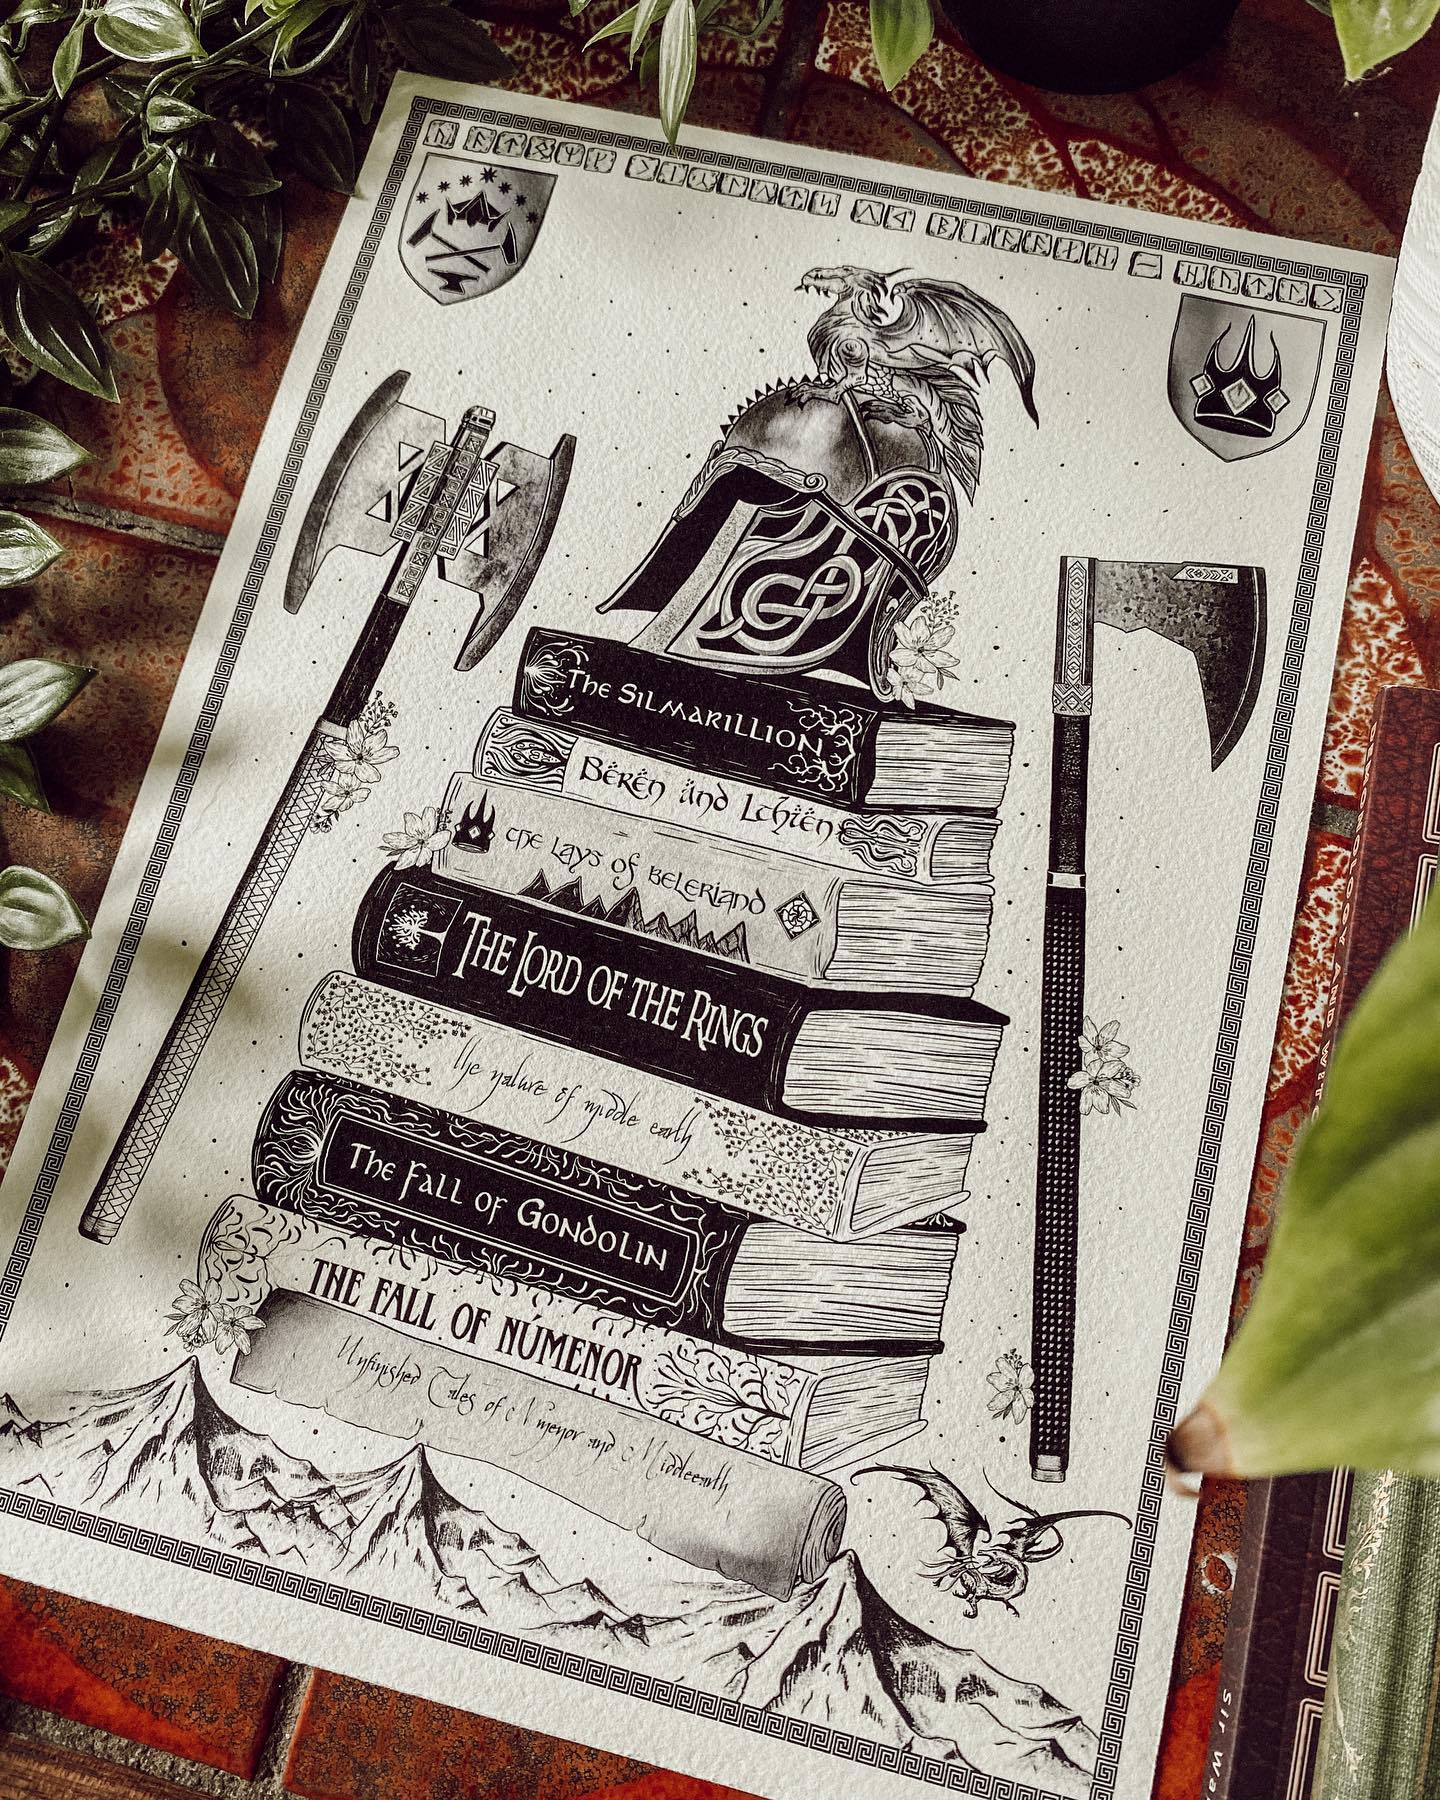 The Silmarillion
Bërën änd Lthïën
the Lays of Beleriand
The Lord of the Rings
the nature of middle earth
The Fall of Gondolin
THE FALL OF NÚMENOR
Unfinished Tales of N menor and Middleearth
AND
Sir Wal